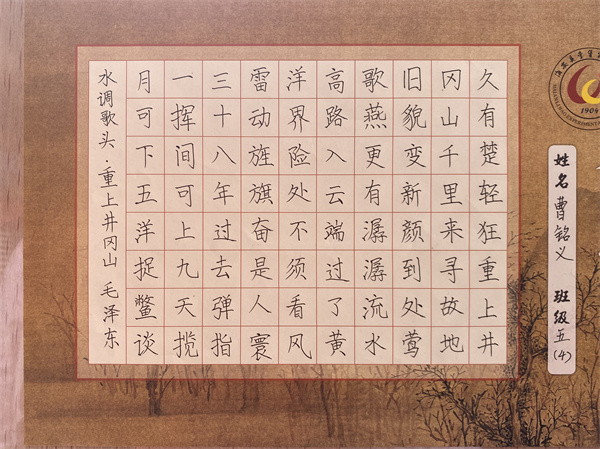 姓名 曹铭义 班级 五(4)
1904
久有楚轻狂重上井
冈山千里来寻故地
旧貌变新颜到处莺
歌燕更有潺潺流水
高路入云端过了黄
洋界险处不须看风
雷动旌旗奋是人寰
三十八年过去弹指
一挥间可上九天揽
月可下五洋捉鳖谈
水调歌头·重上井冈山 毛泽东